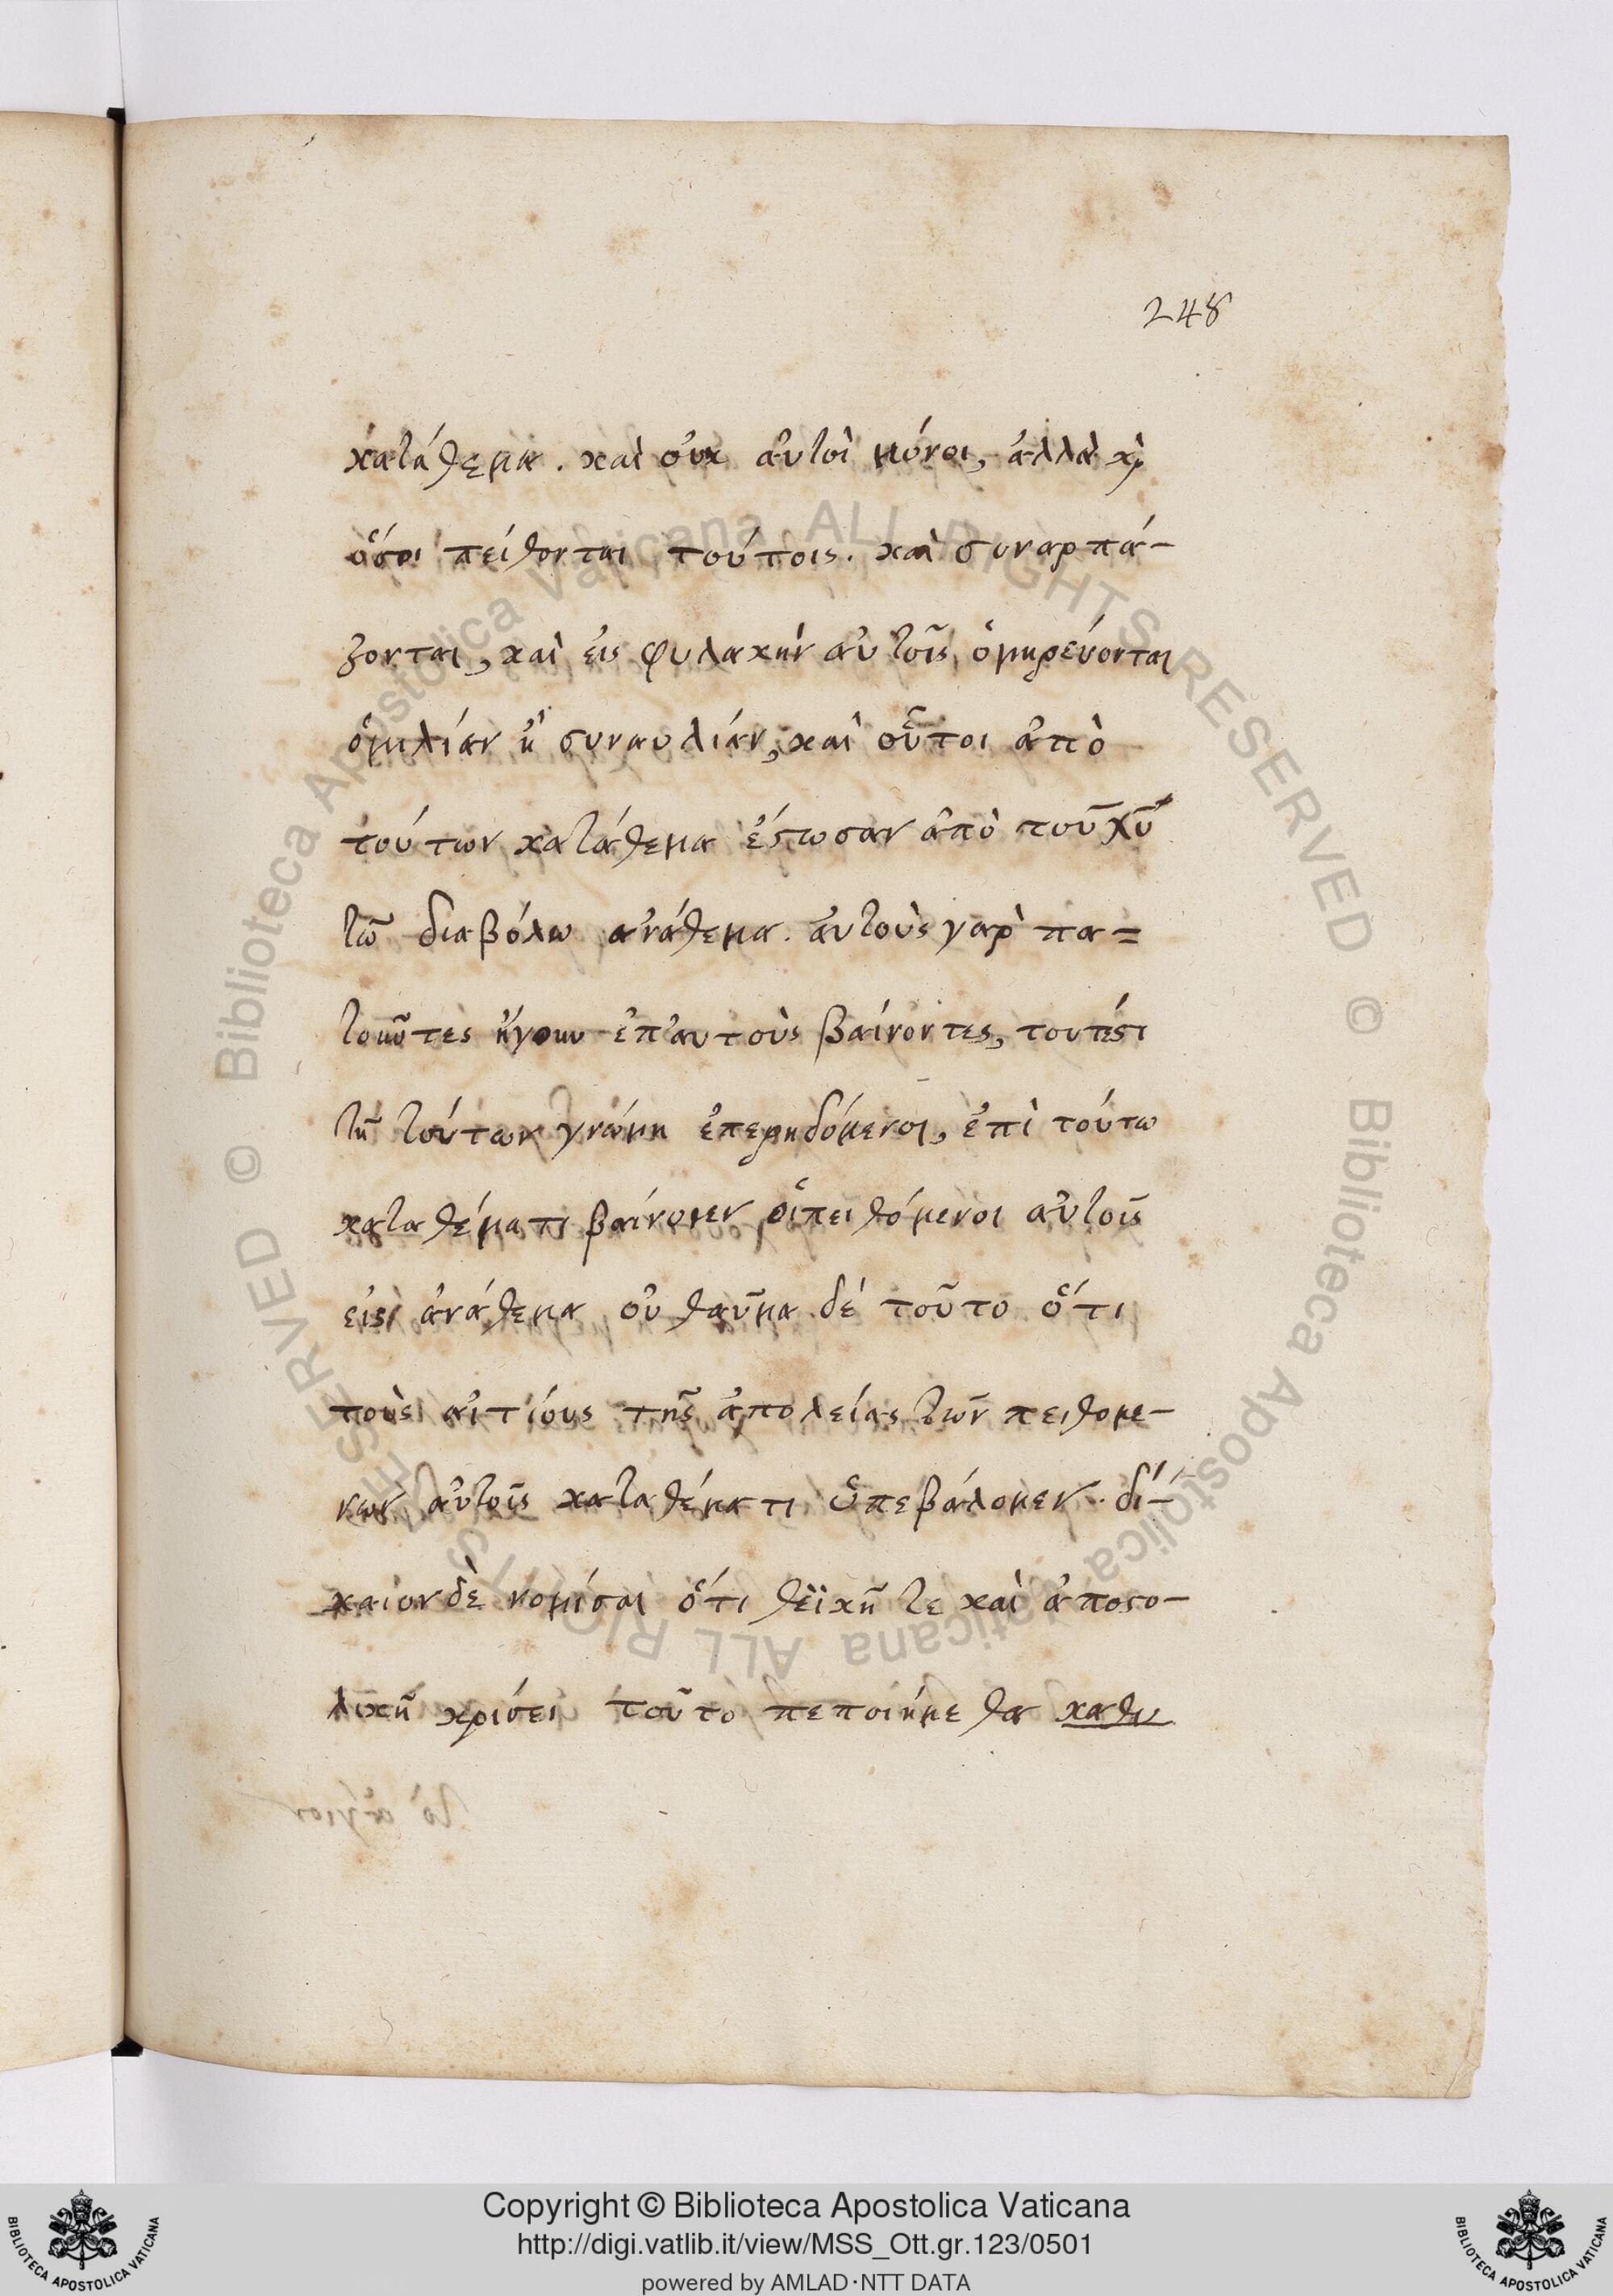 248
κατάθεμα. καὶ οὐκ αὐτοὶ μόνοι, ἀλλὰ κὶ
ὅσοι πείθονται τούτοις. καὶ συναρπά-
ζονται, καὶ εἰς φυλακὴν αὐτοῖς ὁμηρεύονται
ὁμιλίαν ἢ συναυλίαν, καὶ οὗτοι ἀπὸ
τούτων κατάθεμα ἔστωσαν ἀπὸ τοῦ χῦ
τῶ διαβόλω ἀνάθεμα. αὐτοὺς γαρ πα=
τοῦντες ἤγουν ἐπ' αυτοὺς βαίνοντες, τουτέστι
τῆ τούτων γνώμη ἐπερηδόμενοι, ἐπὶ τούτω
καταθέματι βαίνομεν οἱ πειθόμενοι αὐτοῖς
εἰσὶ ἀνάθεμα οὐ θαῦμα δέ τοῦτο ὅτι
τοὺς αἰτίους τῆς ἀπολείας τῶν πειθομέ-
νων αὐτοῖς καταθέματι ὑπεβάλομεν. δί-
καιον δὲ νομίσαι ὅτι θεϊκῆ τε καὶ ἀποστο-
λικῆ κρίσει τοῦτο πεποιήμεθα
Biblioteca Apostolica Vaticana ALL RIGHTS RESERVED ©
Biblioteca Apostolica Vaticana ALL RIGHTS RESERVED ©
Copyright © Biblioteca Apostolica Vaticana
http://digi.vatlib.it/view/MSS_Ott.gr.123/0501
powered by AMLAD·NTT DATA
BIBLIOTECA APOSTOLICA VATICANA
BIBLIOTECA APOSTOLICA VATICANA